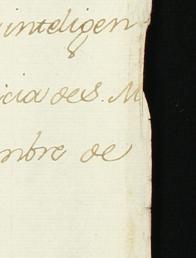 inteligen
icia de S. M
mbre de